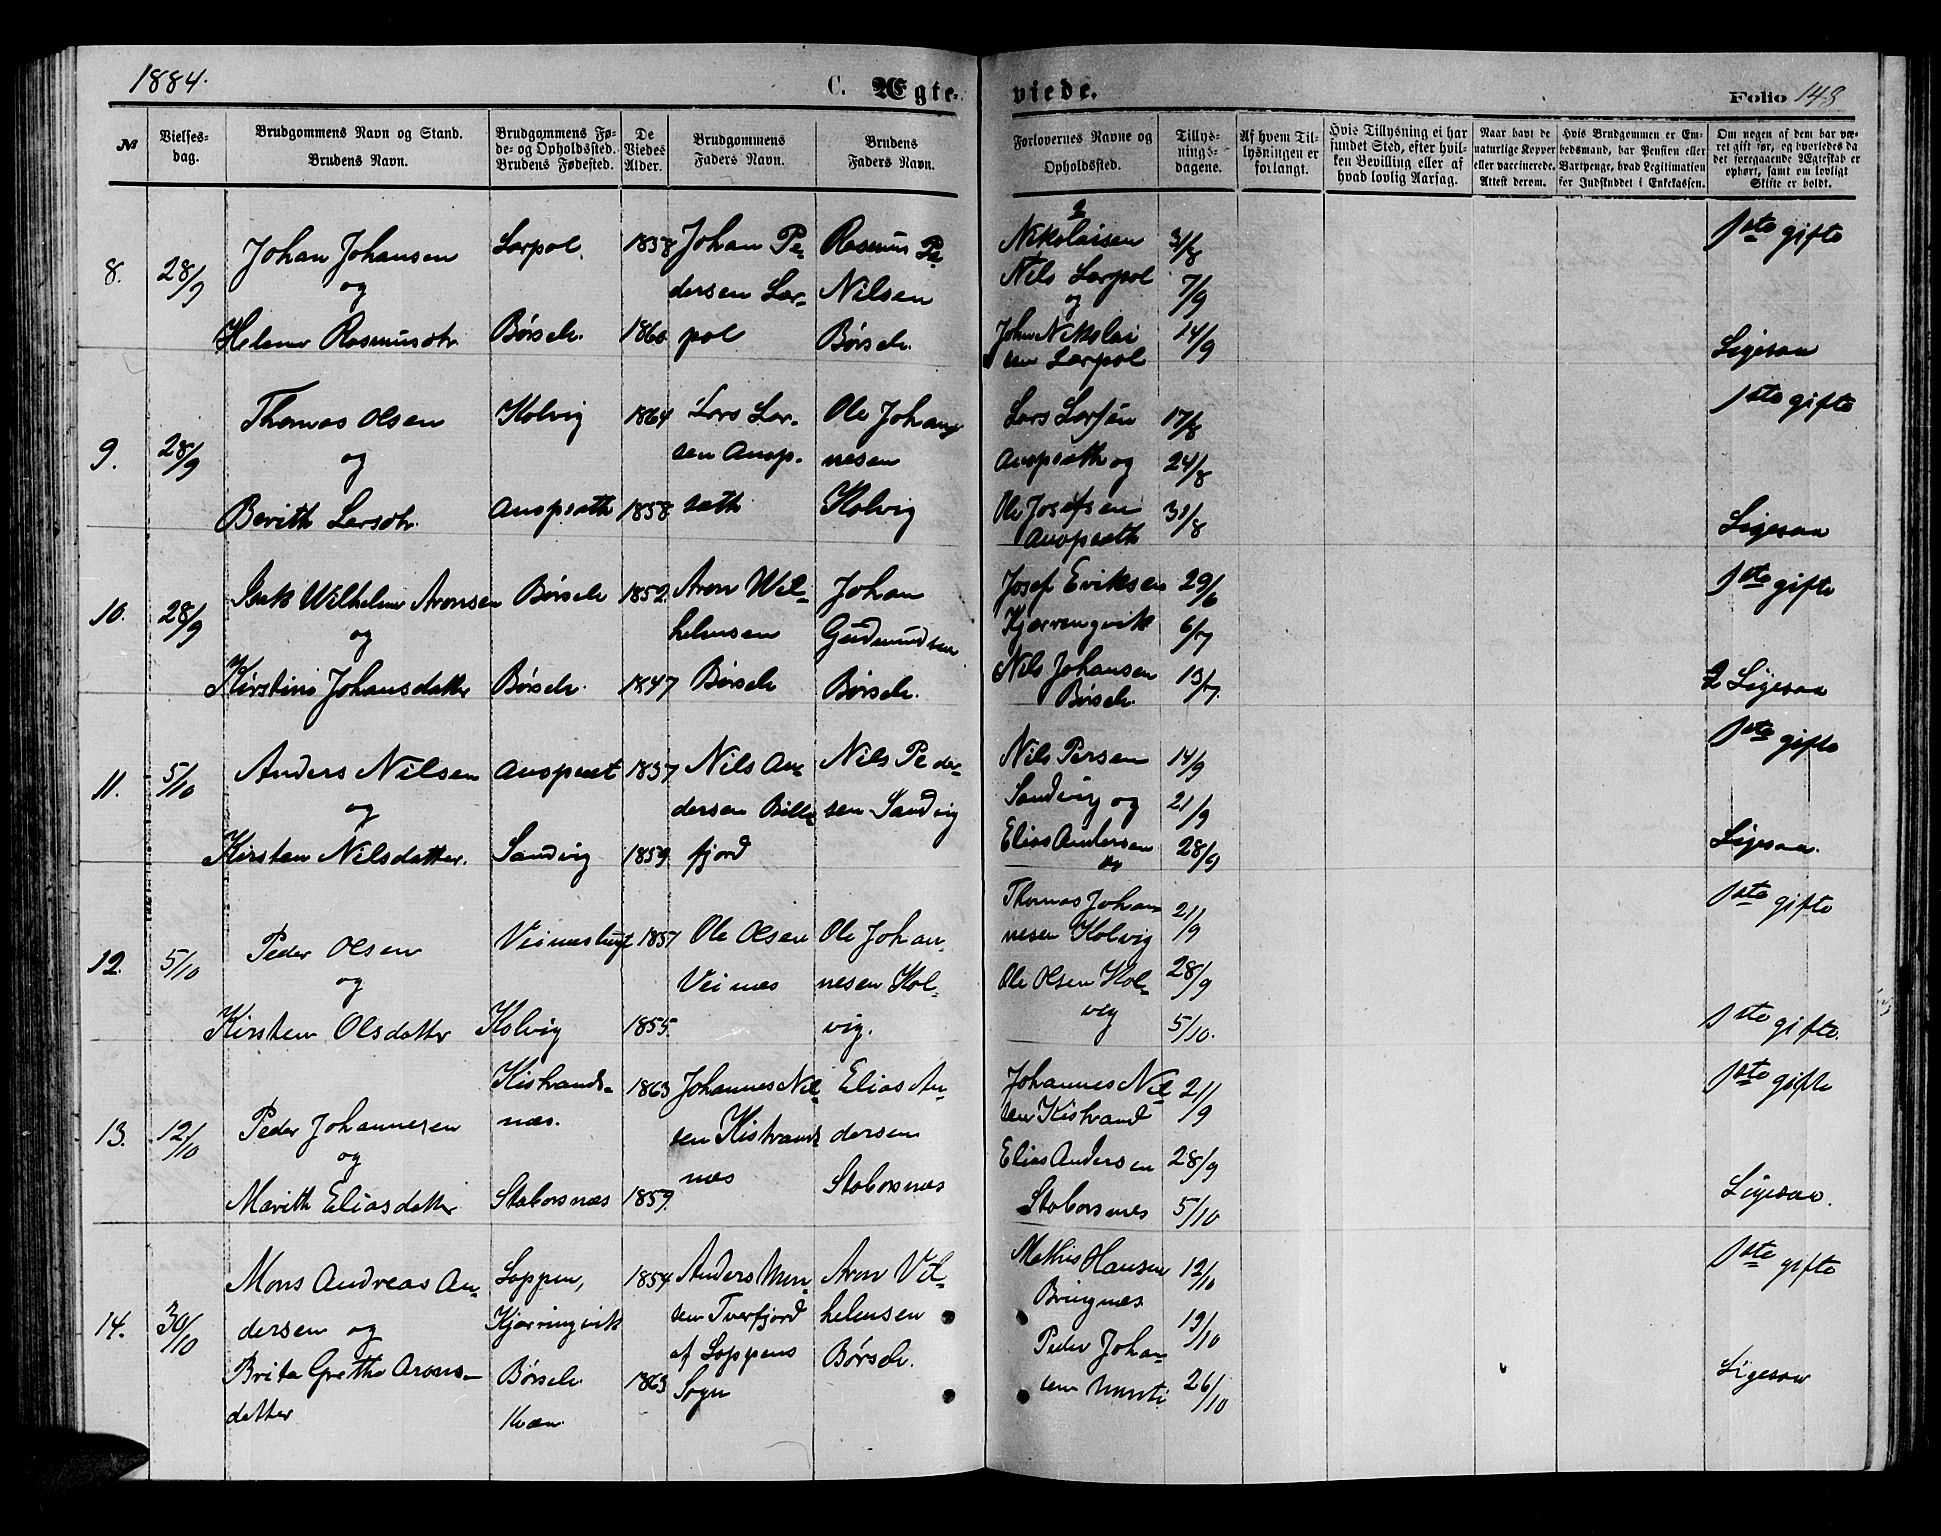 1884.
C. Ægte-
viede.
Folio 148
№
Vielses-
dag.
Brudgommens Navn og Stand.
Brudens Navn.
Brudgommens Fø-
de- og Opholdssted.
Brudens Fødested.
De
Viedes
Alder.
Brudgommens
Faders Navn.
Brudens
Faders Navn.
Forlovernes Navne og
Opholdssted.
Tillys-
nings-
dagene.
Af hvem Til-
lysningen er
forlangt.
Hvis Tillysning ei har
fundet Sted, efter hvil-
ken Bevilling eller af
hvad lovlig Aarsag.
Naar havt de
naturlige Kopper
eller vaccinerede.
Attest derom.
Hvis Brudgommen er Em-
bedsmand, har Pension eller
Vartpenge, hvad Legitimation
for Indskuddet i Enkekassen.
Om nogen af dem har væ-
ret gift før, og hvorledes da
det foregaaende Ægteskab er
ophørt, samt om lovligt
Skifte er holdt.
8.
28/9
Johan Johansen
og
Helene Rasmusdtr
Larpol.
Børselv.
1858
1860
Johan Pe-
dersen Lar-
pol
Rasmus Pe-
Nilsen
Børselv.
Nikolaisen
Nils Larpol
og
John Nikolai
sen Larpol
31/8
7/9
14/9
1ste gifte
Ligesaa
9.
28/9
Thomas Olsen
og
Berith Larsdtr.
Kolvig
Anopsæth
1864
1858
Lars Lar-
sen Anop-
sæth
Ole Johan-
nesen
Kolvig
Lars Larsen
Anopsæth og
Ole Josefsen
Anopsæth
17/8
24/8
31/8
1ste gifte
Ligesaa
10.
28/9
Isak Wilhelm Aronsen
og
Kirstine Johansdatter
Børselv
Børselv.
1852.
1847
Aron Wil-
helmsen
Børselv
Johan
Gudmundsen
Børselv.
Josef Eriksen
Kjærringvik
Nils Johansen
Børselv.
29/6
6/7
13/7.
1ste gifte
2 Ligesaa
11.
5/10
Anders Nilsen
og
Kirsten Nilsdatter.
Anopsæt
Sandvig
1857
1859
Nils An-
dersen Bille
fjord
Nils Peder-
sen Sandvig
Nils Persen
Sandvig og
Elias Andersen
14/9
21/9
28/9
1ste gifte
Ligesaa.
12.
5/10
Peder Olsen
og
Kirsten Olsdatter
Kolvig
1857
1855.
Ole Olsen
Veines
Ole Johan-
nesen Kol-
vig.
Thomas Johan-
nesen Kolvig
Ole Olsen Kol-
vig
21/9
28/9
5/10.
1ste gifte
1ste gifte.
13.
12/10
Peder Johannesen
og
Marith Eliasdatter
Kistrands-
næs.
Staborsnæs
1863
1859.
Johannes Nil-
sen Kistrands
næs
Elias An-
dersen
Staborsnæs
Johannes Nil-
sen Kistrand
Elias Andersen
Staborsnæs
21/9
28/9
5/10
1ste gifte
Ligesaa.
14.
30/10
Mons Andreas An-
dersen og
Brita Grethe Arons-
datter
Loppen,
Kjærringvik
Børselv.
Kvæn
1854
1863
Anders Mon-
sen Tverfjord
af Loppens
Sogn
Aron Vil-
helmsen
Børselv.
Mathis Hansen
Bringnæs
Peder Johan-
sen
12/10
19/10
26/10
1ste gifte
Ligesaa